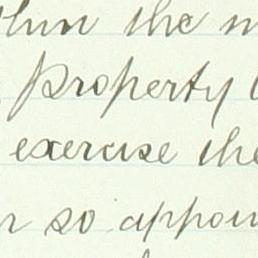 the
Property
exercise the
so appoin